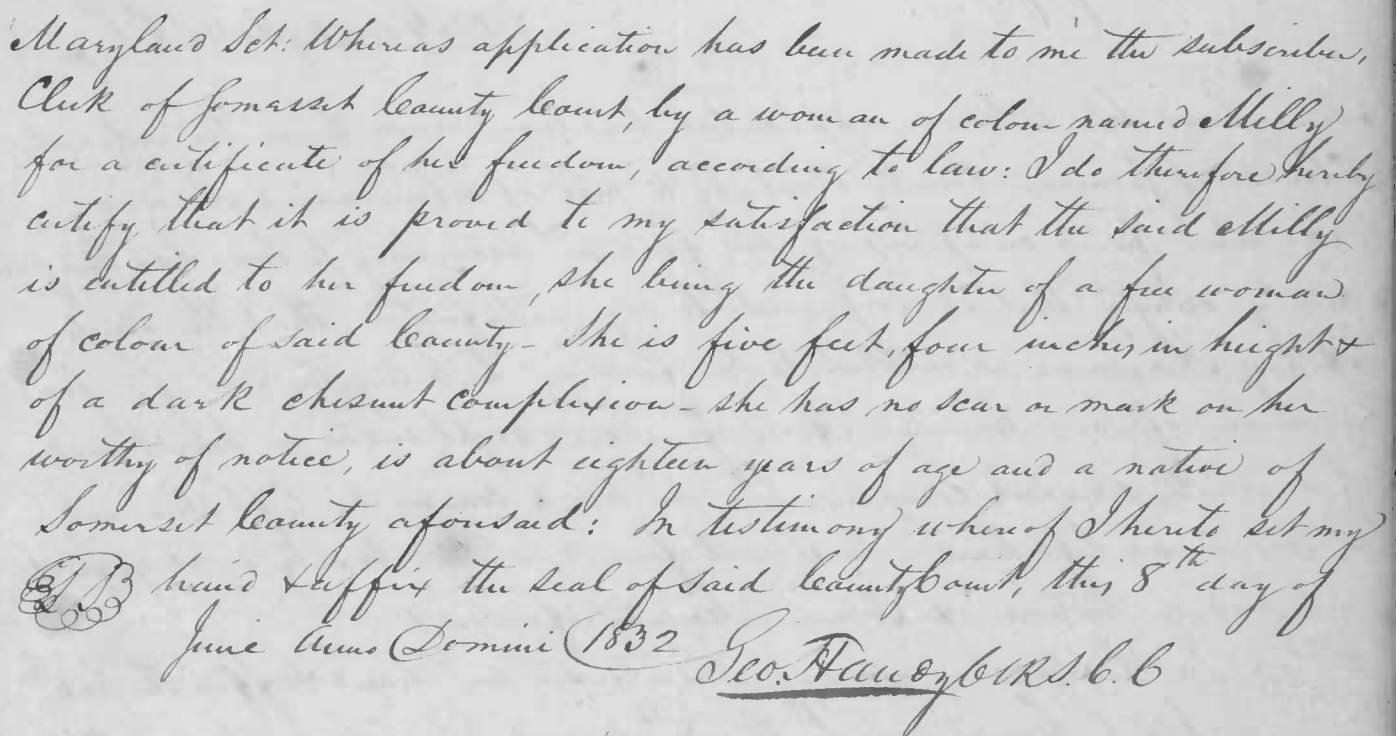 Maryland Sct: Whereas application has been made to me the subscriber,
Clerk of Somerset County Court, by a woman of colour named Milly
for a certificate of her freedom, according to law: I do therefore hereby
certify that it is proved to my satisfaction that the said Milly
is entitled to her freedom, she being the daughter of a free woman
of colour of said County - She is five feet, four inches in height &
of a dark chesnut complexion - she has no scar or mark on her
worthy of notice, is about eighteen years of age and a native of
Somerset County aforesaid: In testimony whereof I hereto set my
hand & affix the seal of said County Court, this 8th day of
June Anno Domini 1832
Geo. Handy Clk S. C. C